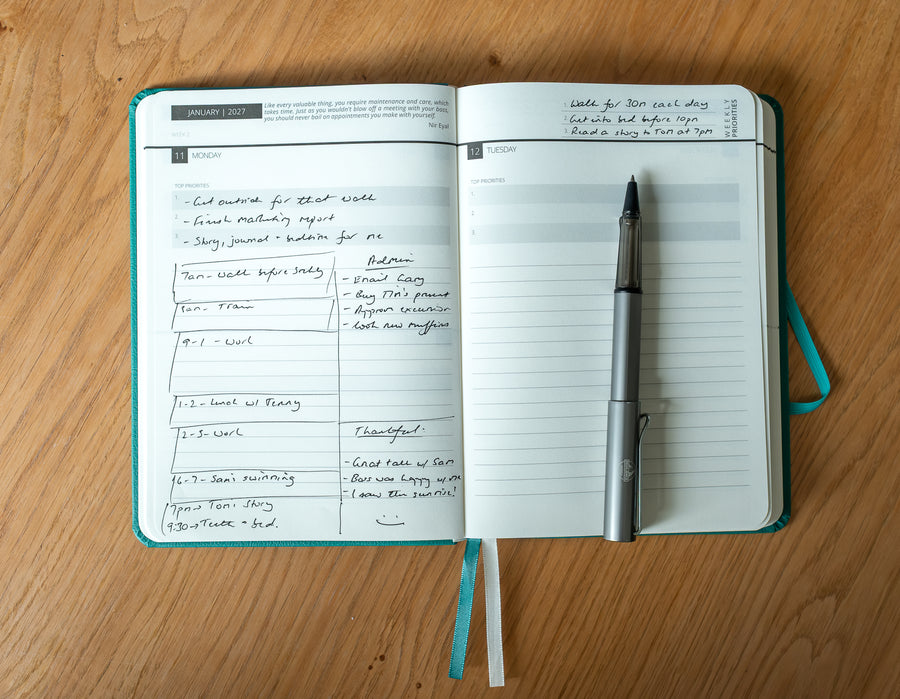 JANUARY | 2027
Like every valuable thing, you require maintenance and care, which
takes time. Just as you wouldn't blow off a meeting with your boss,
you should never bail on appointments you make with yourself.
Nir Eyal
WEEK 2
11 MONDAY
TOP PRIORITIES
1. - Get outside for that walk
2. - Finish marketing report
3. - Story, journal + bedtime for me
7am - Walk before
8am - Train
9-1 - Work
1-2 - Lunch w/ Jenny
2-5 - Work
6-7 - Sam's swimming
7pm → Tom's Story
9:30 → Teeth + bed.
Admin
- Email Gary
- Buy Tim's present
- Approve excursion
- Cook new muffins
Thankful:
- Great talk w/ Sam
- Boss was happy w/ me
- I saw the sunrise!
1. Walk for 30m each day
2. Get into bed before 10pm
3. Read a story to Tom at 7pm
WEEKLY
PRIORITIES
12 TUESDAY
TOP PRIORITIES
1.
2.
3.